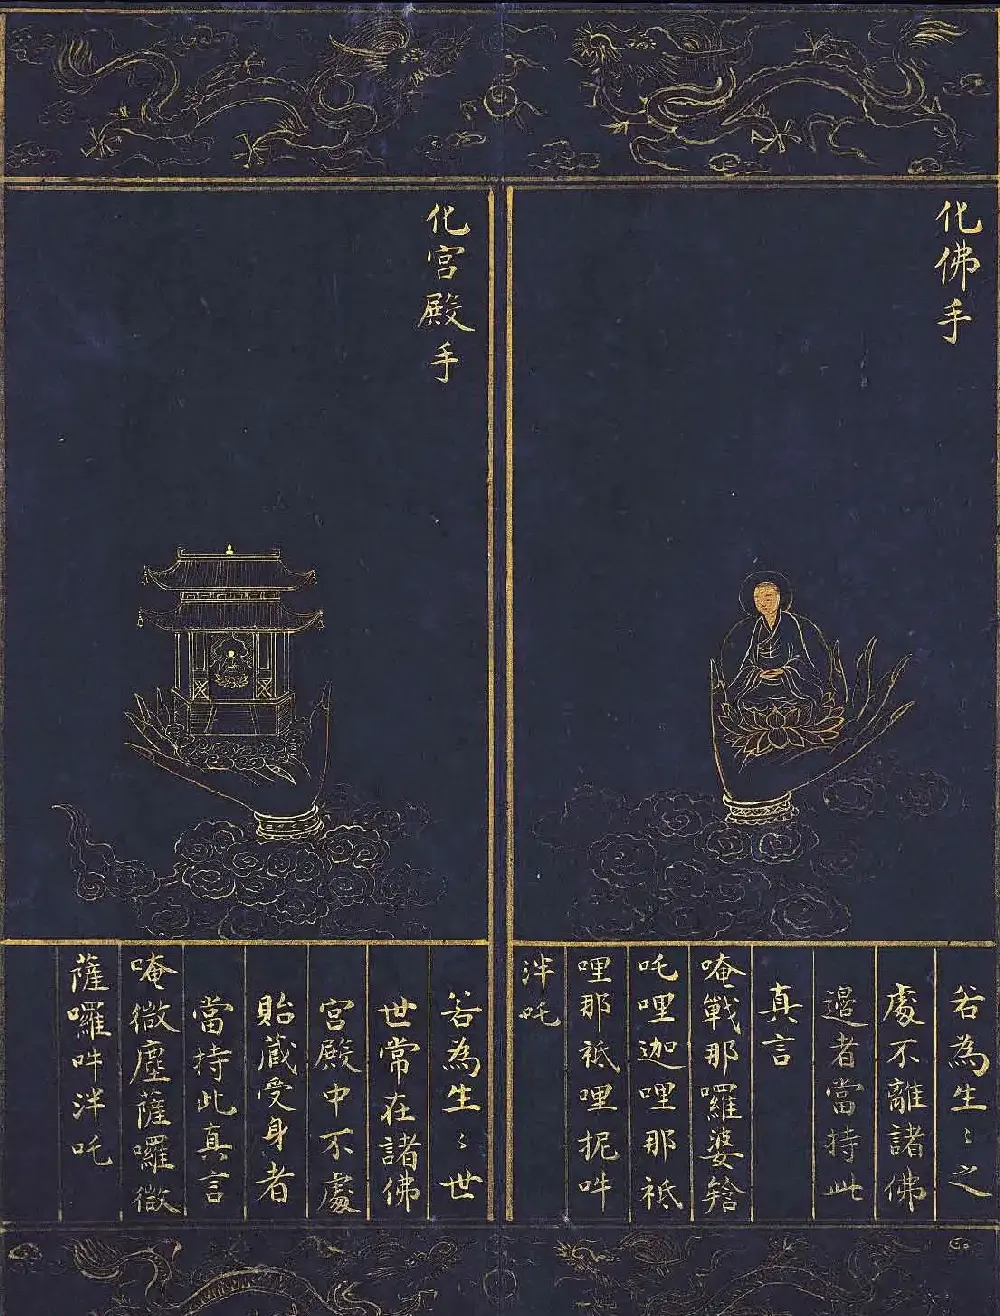 化佛手
若為生〻之
處不離諸佛
邉者當持此
真言
唵戰那囉婆𤚥
吒哩迦哩那祗
哩那祗哩抳吽
泮吒
化宮殿手
若為生〻世
世常在諸佛
宮殿中不處
貽藏受身者
當持此真言
唵微塵薩囉微
薩囉吽泮吒